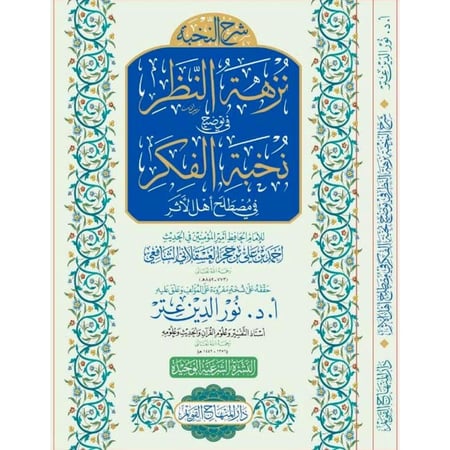 شرح النخبة
نزهة النظر
في توضيح
نخبة الفكر
في مصطلح أهل الأثر
للإمام الحافظ أمير المؤمنين في الحديث
أحمد بن علي بن حجر العسقلاني الشافعي
رحمه الله تعالى
(٧٧٣-٨٥٢هـ)
حققه على نسخة مقروءة على المؤلف وعلق عليه
أ.د. نور الدين عتر
أستاذ التفسير وعلوم القرآن والحديث وعلومه
رحمه الله تعالى
النشرة الشرعية الوحيدة
دار المنهاج القويم
أ.د. نور الدين عتر
شرح النخبة نزهة النظر في توضيح نخبة الفكر في مصطلح أهل الأثر
دار المنهاج القويم